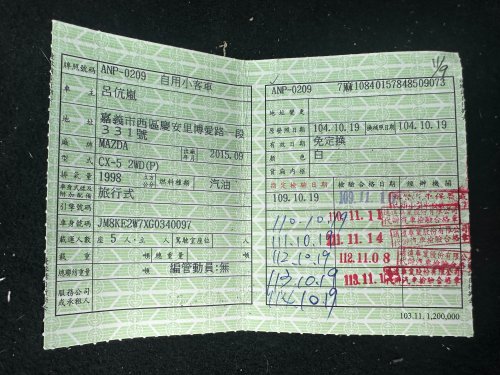 牌照號碼 ANP-0209 自用小客車
車主 呂伉嵐
地址 嘉義市西區慶安里博愛路一段
331號
廠牌 MAZDA 出廠年月 2015.09
型式 CX-5 2WD(P)
排氣量 1998 立方公分 燃料種類 汽油
車身式樣及附加配備 旅行式
引擎號碼
車身號碼 JM8KE2W7XG0340097
載運人數 座 5 人·立 人 駕駛室座位
載重 噸 總重量 噸
總聯結重量 噸 編管動員:無
服務公司或承租人
11/9
ANP-0209 710840157848509073
地址變更
原發照日期 104.10.19 換補照日期 104.10.19
有效日期 免定換
顏色 白
背廂內容
指定檢驗日期 檢驗合格日期 經辦機關
109.10.19 109.11
110.10.19 110.11.11
111.10.19 111.11.14
112.10.19 112.11.08
113.10.19 113.11.1
114.10.19
103.11.1,200,000